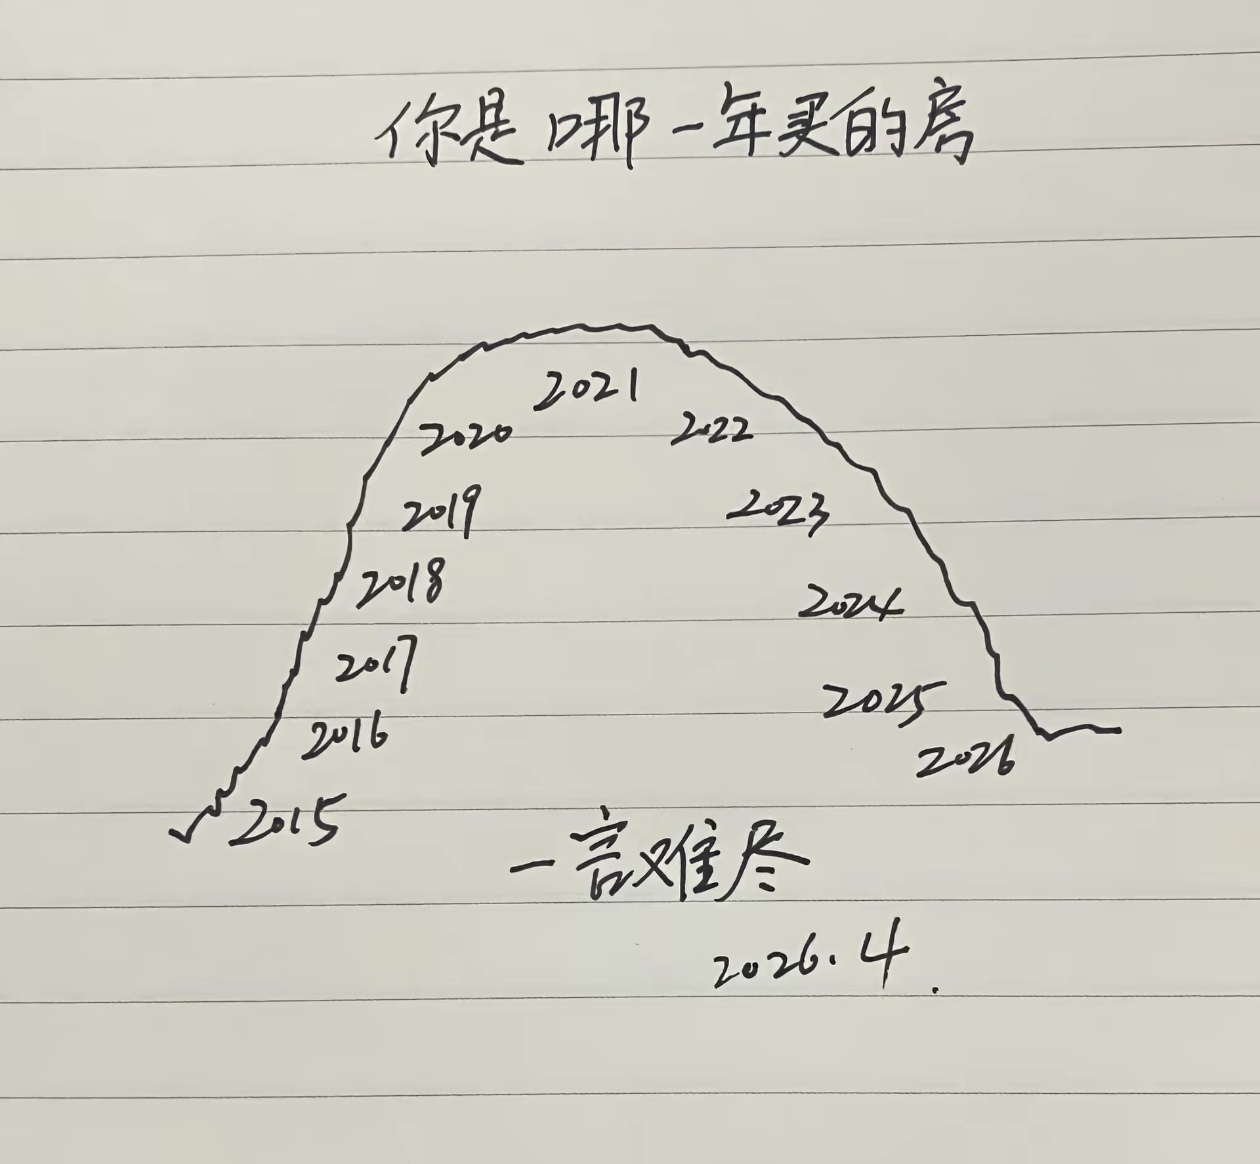 你是哪一年买的房
2021
2020
2022
2019
2023
2018
2024
2017
2025
2016
2026
2015
一言难尽
2026.4.